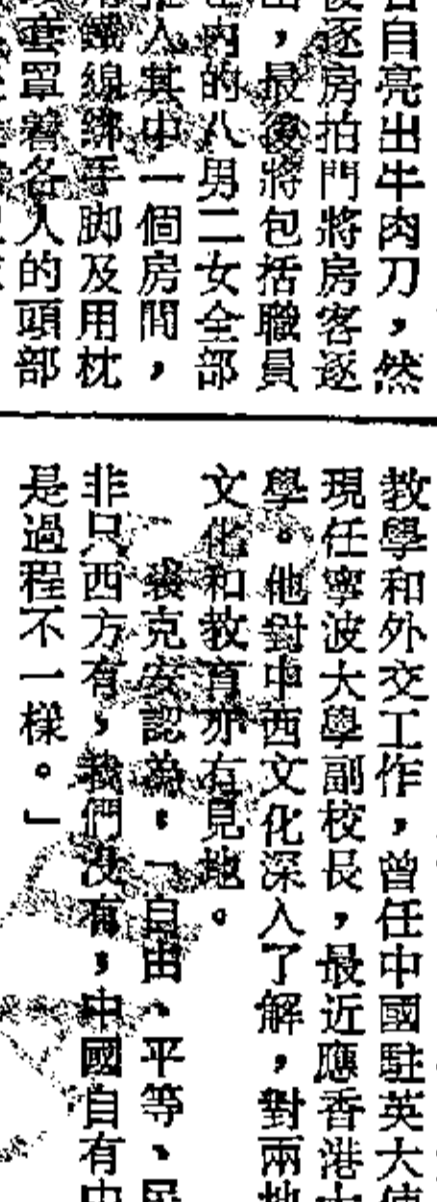 自亮出牛肉刀，然
逐房拍門將房客逐
，最後將包括職員
內的八男二女全部
人其中一個房間，
鐵線綁手脚及用枕
套罩着各人的頭部
教學和外交工作，曾任中國駐英大使
現任寧波大學副校長，最近應香港
學。他對中西文化深入了解，對兩地
文化和教育亦有見地。
裴克安認為：「自由、平等、民
非只西方有，我們沒有，中國自有中
是過程不一樣。」